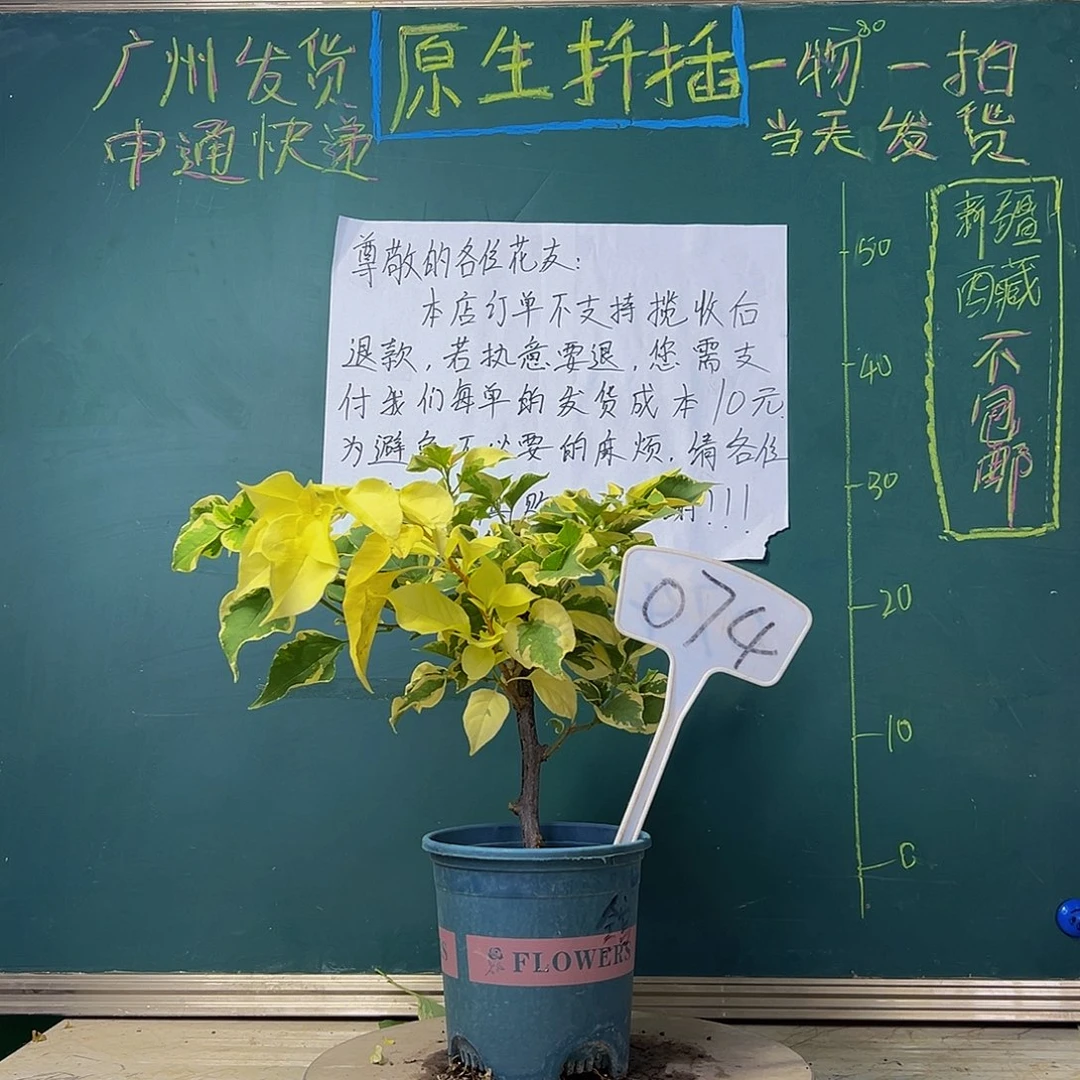 广州发货
原生扦插
一物一拍
80
申通快递
当天发货
新疆
西藏
不
包
邮
50
40
30
20
10
0
尊敬的各位花友:
本店订单不支持揽收后
退款,若执意要退,您需支
付我们每单的发货成本10元.
为避免不必要的麻烦.请各位
!!!
074
FLOWERS
S